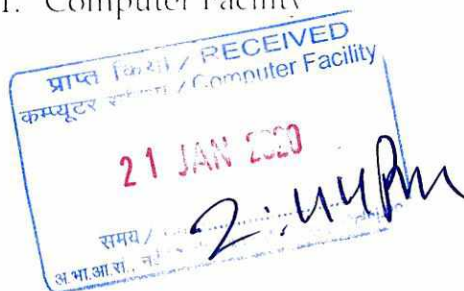 1. Computer Facility
प्राप्त किया / RECEIVED
कम्प्यूटर / Computer Facility
21 JAN 2020
समय /
2:44 Pm
अ.भा.आ.सं.